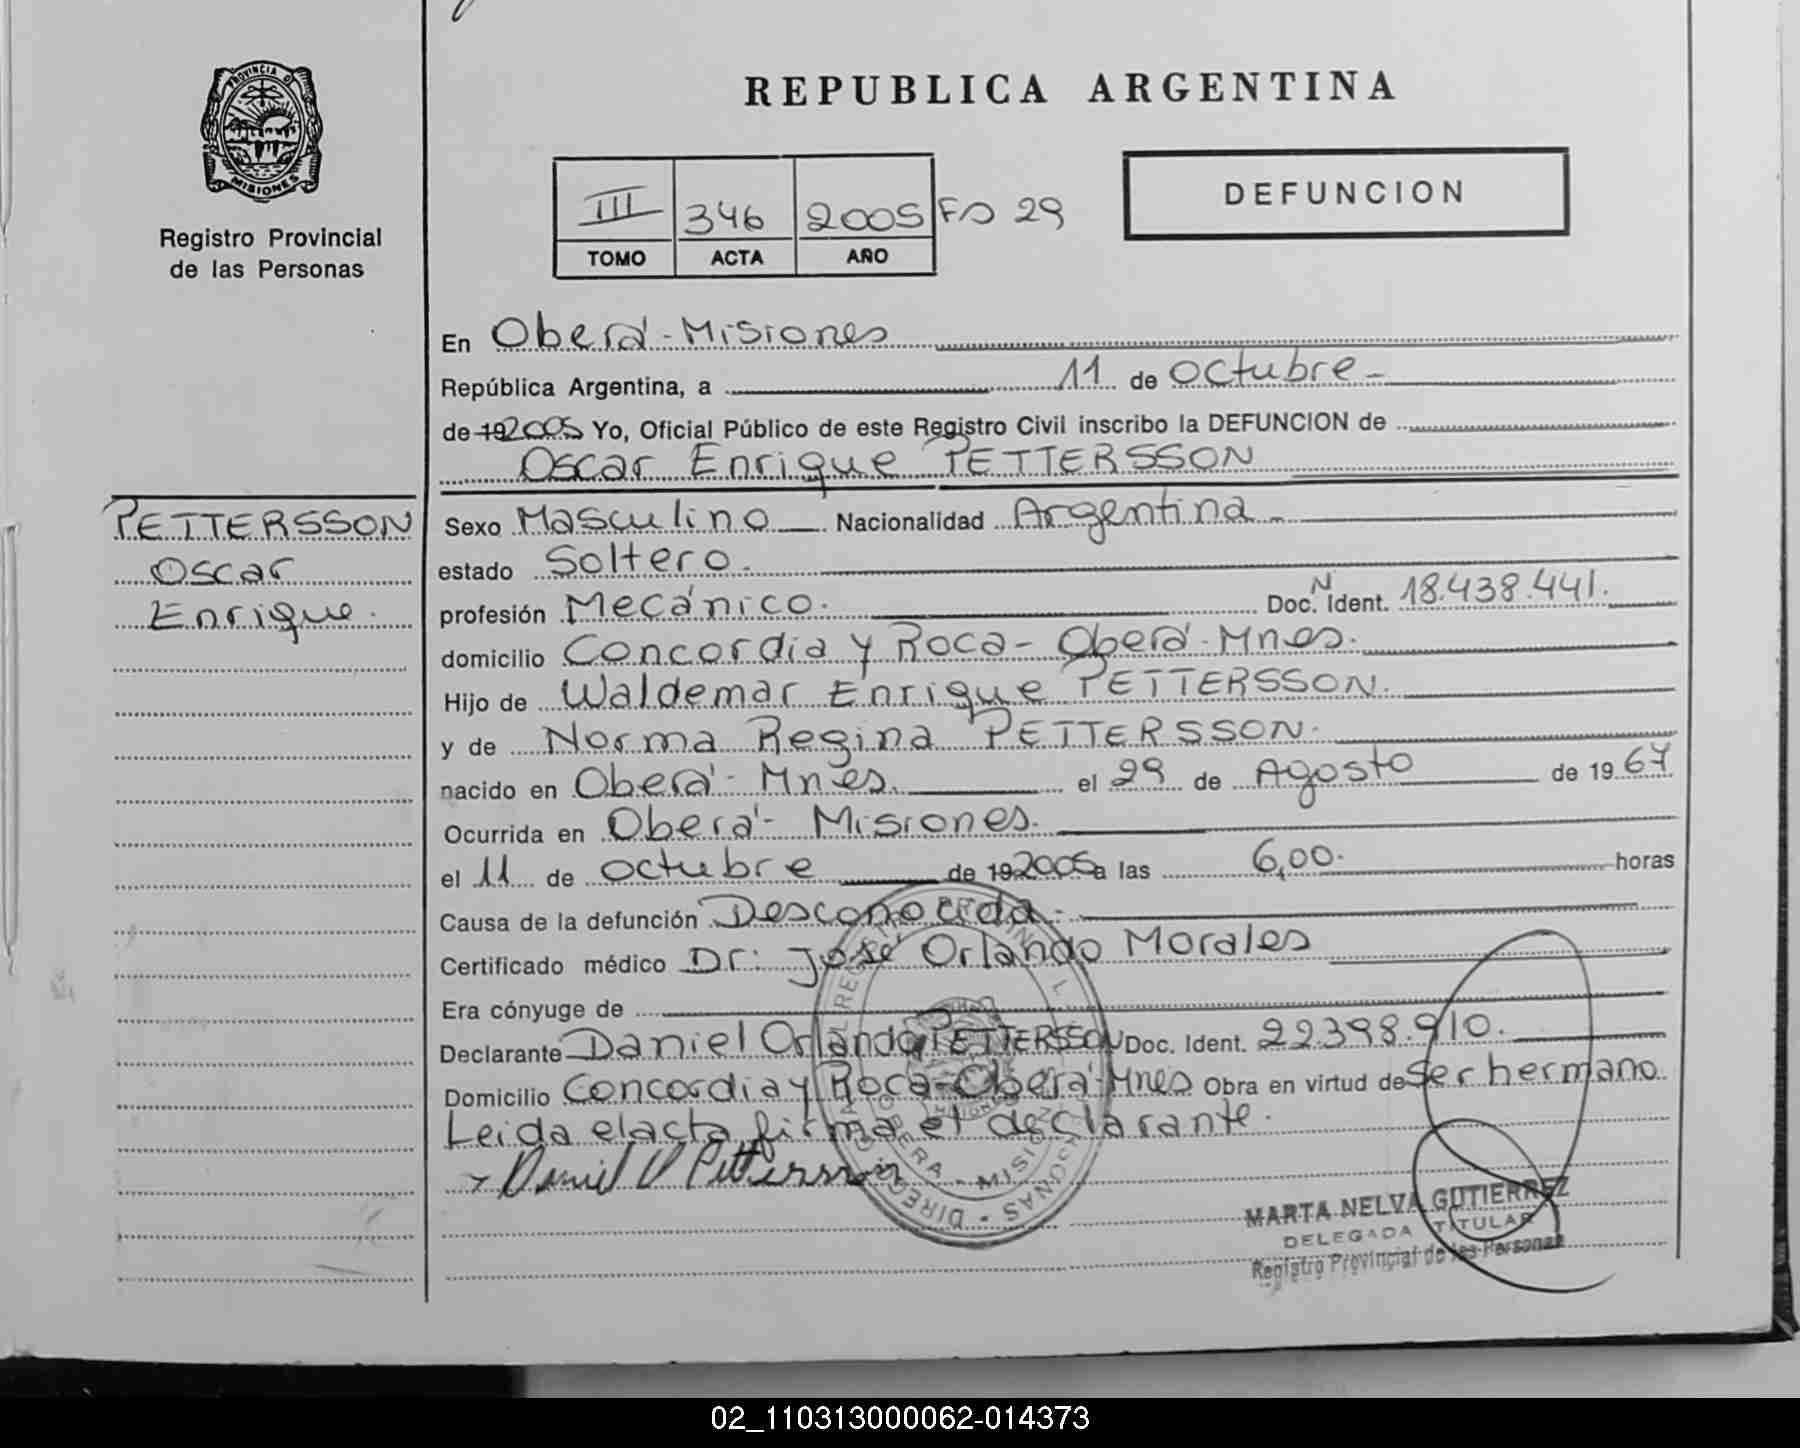 PROVINCIA D
MISIONES
Registro Provincial
de las Personas
REPUBLICA ARGENTINA
III 346 2005 Fo 29
TOMO ACTA AÑO
DEFUNCION
En Oberá - Misiones
República Argentina, a 11 de Octubre -
de 192005 Yo, Oficial Público de este Registro Civil inscribo la DEFUNCION de
Oscar Enrique PETTERSSON
PETTERSSON
Oscar
Enrique.
Sexo Masculino Nacionalidad Argentina -
estado Soltero.
profesión Mecánico. Doc. N Ident. 18.438.441.
domicilio Concordia y Roca - Oberá - Mnes.
Hijo de Waldemar Enrique PETTERSSON.
y de Norma Regina PETTERSSON.
nacido en Oberá - Mnes. el 29 de Agosto de 1967
Ocurrida en Oberá - Misiones.
el 11 de octubre de 192005 a las 6,00. horas
Causa de la defunción Desconocida -
Certificado médico Dr: José Orlando Morales
Era cónyuge de
Declarante Daniel Orlando PETTERSSON Doc. Ident. 22398.910.
Domicilio Concordia y Roca - Oberá - Mnes Obra en virtud de Ser hermano
Leida el acta firma el declarante.
Daniel O Pettersson
OBERA - MISIONES
MARTA NELVA GUTIERREZ
DELEGADA TITULAR
Registro Provincial de las Personas
02_110313000062-014373